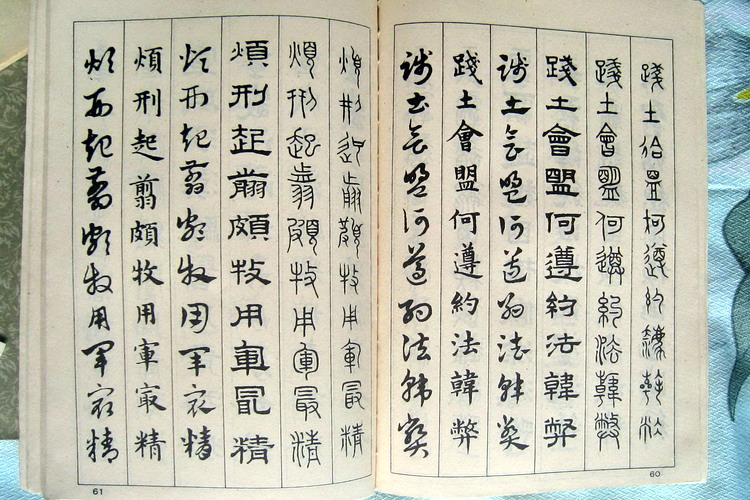 踐土會盟何遵約法韓弊
踐土會盟何遵約法韓弊
踐土會盟何遵約法韓弊
踐土會盟何遵約法韓弊
踐土會盟何遵約法韓弊
踐土會盟何遵約法韓弊
60
煩刑起翦頗牧用軍最精
煩刑起翦頗牧用軍最精
煩刑起翦頗牧用軍最精
煩刑起翦頗牧用軍最精
煩刑起翦頗牧用軍㝡精
煩刑起翦頗牧用軍最精
61